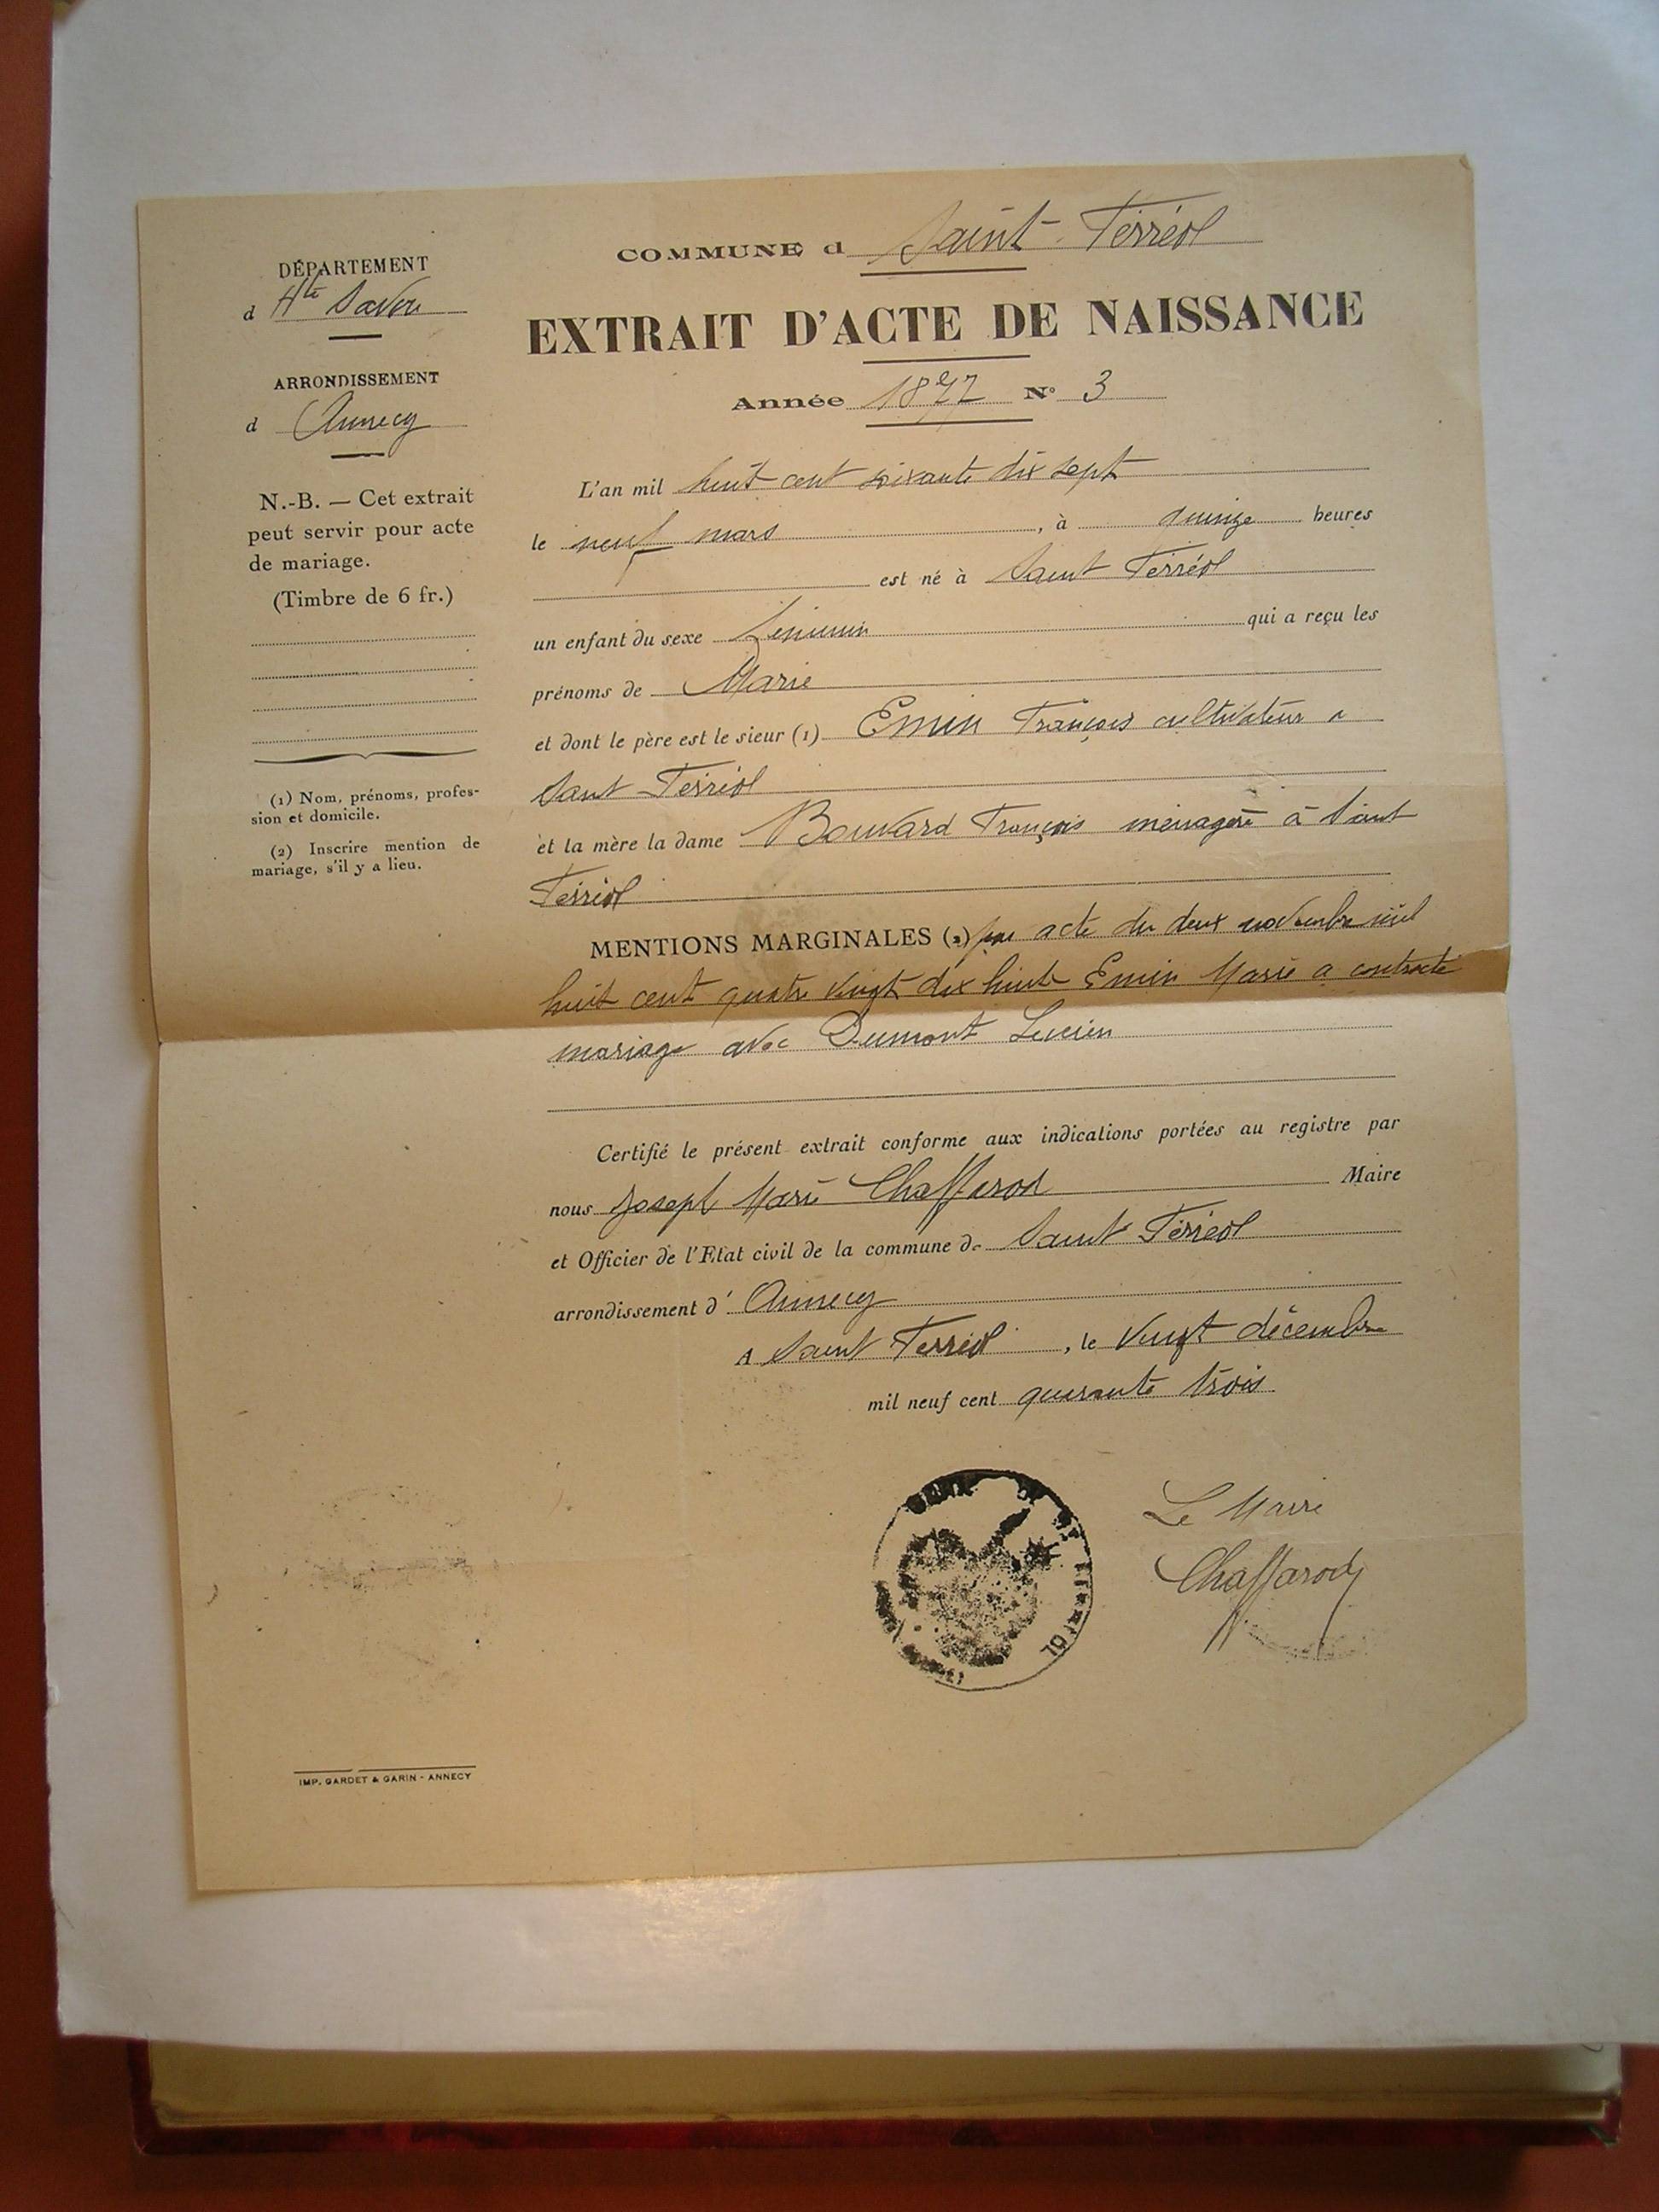 COMMUNE d Saint-Férréol
DÉPARTEMENT
d Hte Savoie
ARRONDISSEMENT
d Annecy
N.-B. — Cet extrait
peut servir pour acte
de mariage.
(Timbre de 6 fr.)
(1) Nom, prénoms, profes-
sion et domicile.
(2) Inscrire mention de
mariage, s'il y a lieu.
EXTRAIT D'ACTE DE NAISSANCE
Année 1877 N° 3
L'an mil huit cent soixante dix sept
le neuf mars, à quinze heures
est né à Saint Férréol
un enfant du sexe féminin qui a reçu les
prénoms de Marie
et dont le père est le sieur (1) Emin François cultivateur a
Saint Férréol
et la mère la dame Bouvard François ménagère à Saint
Férréol
MENTIONS MARGINALES (2) par acte du deux novembre mil
huit cent quatre vingt dix huit Emin Marie a contracté
mariage avec Dumont Lucien
Certifié le présent extrait conforme aux indications portées au registre par
nous Joseph Marie Chaffarod Maire
et Officier de l'Etat civil de la commune de Saint Férréol
arrondissement d' Annecy
A Saint Ferréol, le vingt décembre
mil neuf cent quarante trois
Le Maire
Chaffarod
IMP. GARDET & GARIN - ANNECY